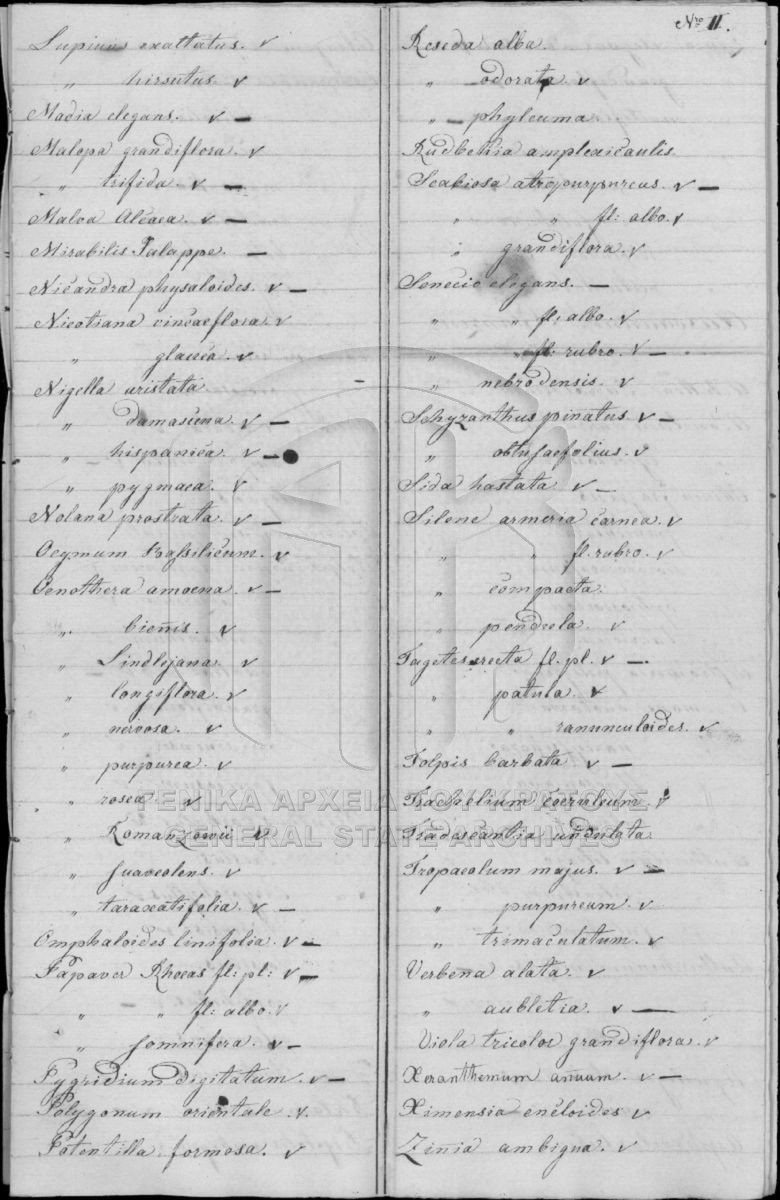 Nro II.
Lupinus exaltatus. v
„ hirsutus. v
Madia elegans. v —
Malopa grandiflora. v
„ trifida. v —
Malva Alcaea. v —
Mirabilis Jalappe. —
Nicandra physaloides. v —
Nicotiana vincaeflora. v
„ glauca. v
Nigella aristata
„ damascena. v —
„ hispanica. v —
„ pygmaea. v
Nolana prostrata. v —
Ocymum Bassilicum. v
Oenothera amoena. v —
„ bienis. v
„ Lindlejana v
„ longiflora. v
„ nervosa. v
„ purpurea. v
„ rosea v
„ Romanzowii v
„ suaveolens. v
„ taraxatifolia. v —
Omphaloides linifolia. v —
Papaver Rhoeas fl: pl: v —
„ „ fl: albo. v
„ somnifera. v —
Pygridium digitatum. v —
Polygonum orientale. v.
Potentilla formosa. v
Reseda alba.
„ odorata v
„ — phyteuma
Rudbekia amplexicaulis.
Scabiosa atropurpureus. v —
„ „ fl: albo. v
„ grandiflora. v
Senecio elegans. —
„ „ fl: albo. v
„ „ fl: rubro. v —
„ nebrodensis. v
Schyzanthus pinatus v —
„ obtusaefolius. v
Sida hastata v —
Silene armeria carnea. v
„ „ fl. rubro. v
„ compacta.
„ pendula. v
Tagetes erecta fl. pl. v —
„ patula. v
„ „ ranunculoides. v
Tolpis barbata v —
Trachelium coeruleum. v
Tradescantia undulata
Tropaeolum majus. v —
„ purpureum. v
„ trimaculatum. v
Verbena alata. v
„ aubletia. v —
Viola tricolor grandiflora. v
Xeranthemum anuum. v —
Ximensia enceloides v
Zinia ambigua. v
ΓΕΝΙΚΑ ΑΡΧΕΙΑ ΤΟΥ ΚΡΑΤΟΥΣ
GENERAL STATE ARCHIVES